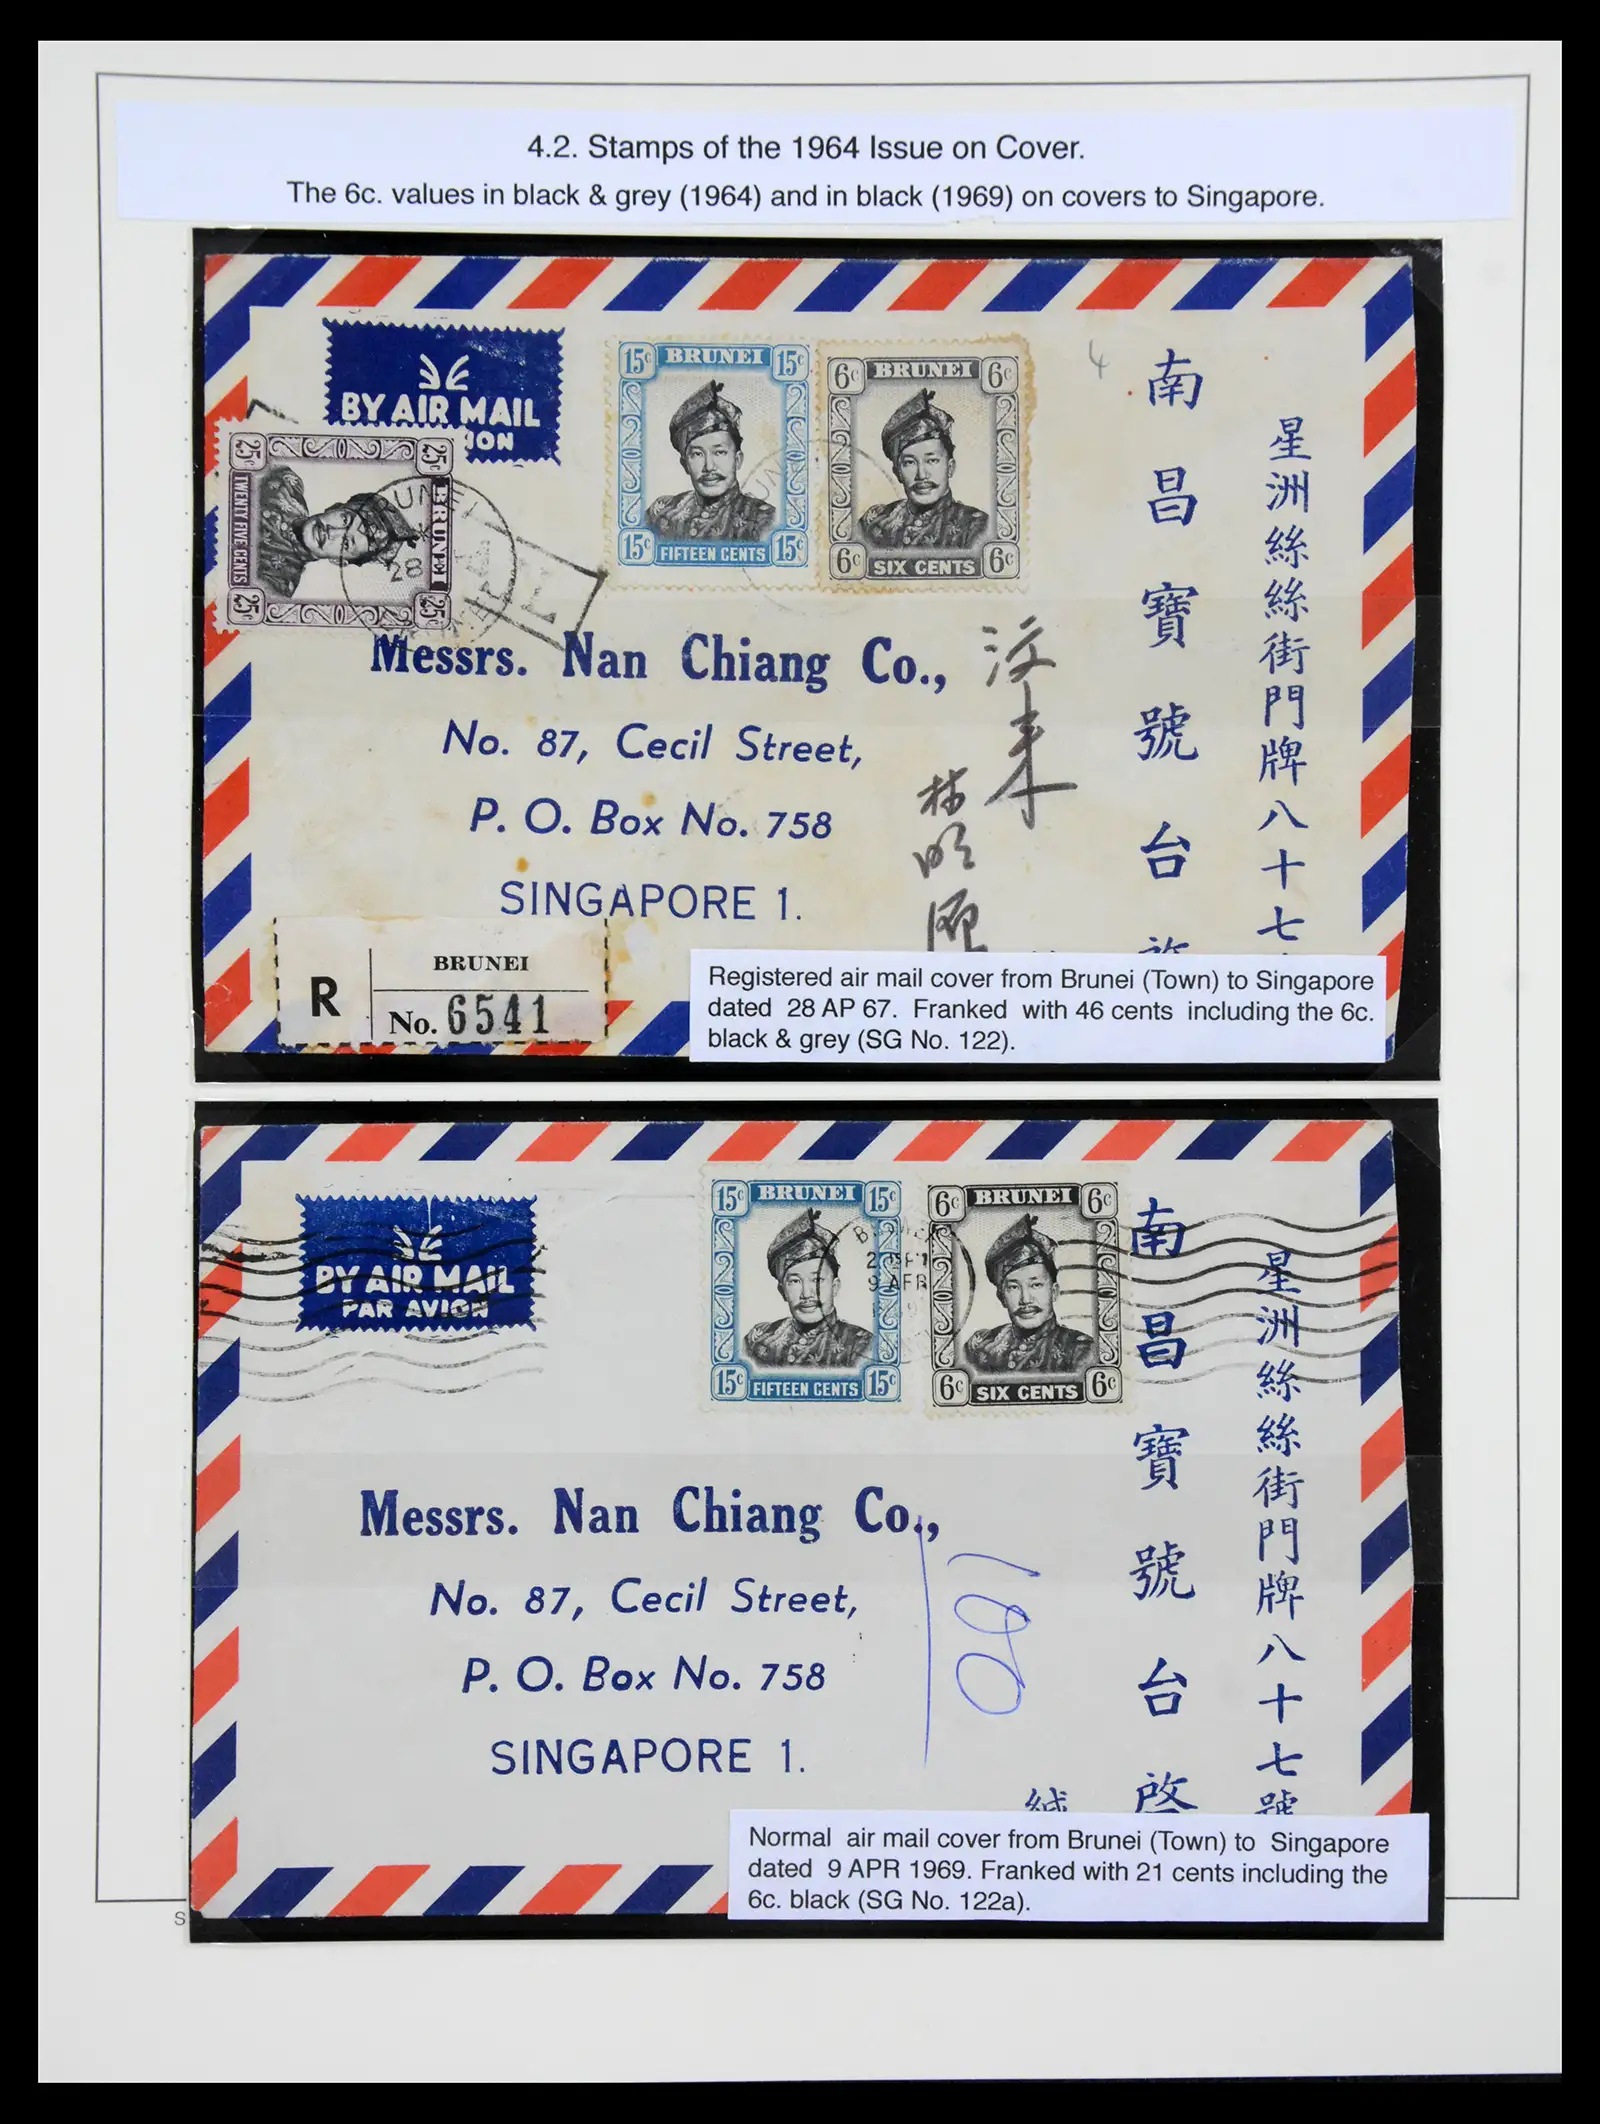 4.2. Stamps of the 1964 Issue on Cover.
The 6c. values in black & grey (1964) and in black (1969) on covers to Singapore.
BY AIR MAIL
ION
15c BRUNEI 15c
15c FIFTEEN CENTS 15c
6c BRUNEI 6c
6c SIX CENTS 6c
25c BRUNEI 25c
25c TWENTY FIVE CENTS 25c
BRUNEI
28
4
Messrs. Nan Chiang Co.,
No. 87, Cecil Street,
P. O. Box No. 758
SINGAPORE 1.
南昌寶號台
星洲絲絲街門牌八十七
R
BRUNEI
No. 6541
Registered air mail cover from Brunei (Town) to Singapore
dated 28 AP 67. Franked with 46 cents including the 6c.
black & grey (SG No. 122).
BY AIR MAIL
PAR AVION
15c BRUNEI 15c
15c FIFTEEN CENTS 15c
6c BRUNEI 6c
6c SIX CENTS 6c
9 APR
Messrs. Nan Chiang Co.,
No. 87, Cecil Street,
P. O. Box No. 758
SINGAPORE 1.
南昌寶號台啓
星洲絲絲街門牌八十七號
緘
Normal air mail cover from Brunei (Town) to Singapore
dated 9 APR 1969. Franked with 21 cents including the
6c. black (SG No. 122a).
S